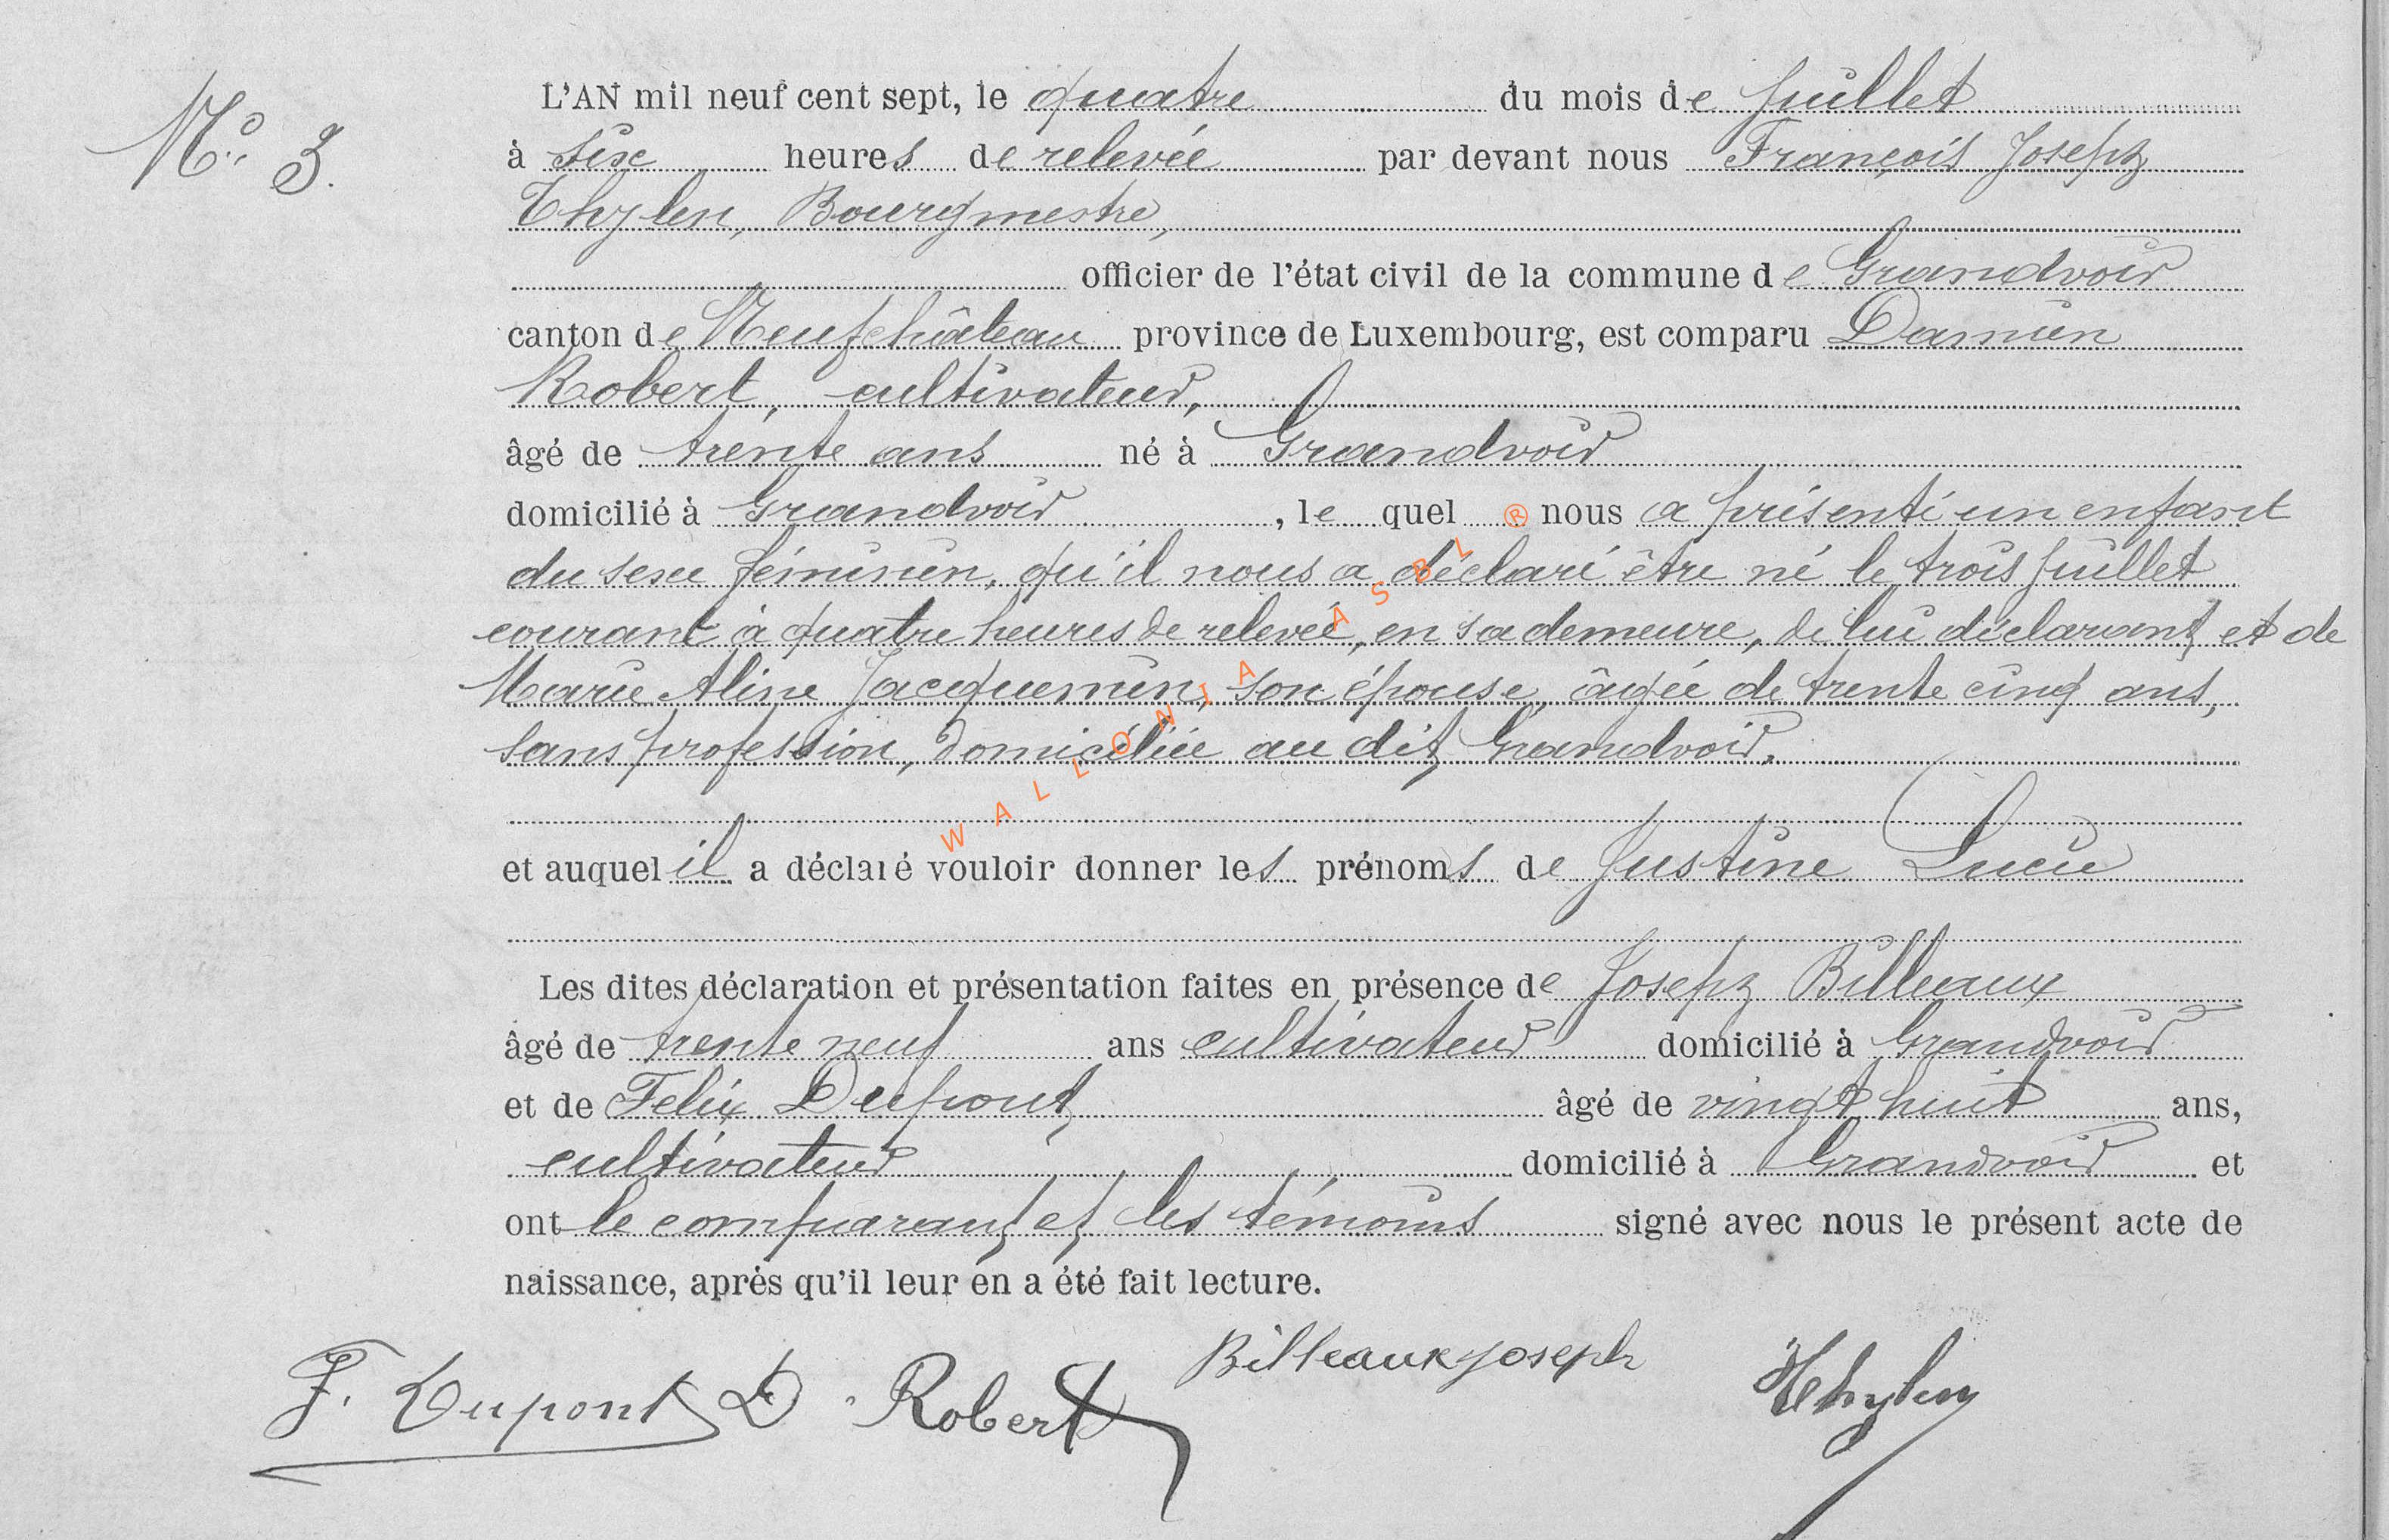 N° 3.
L'AN mil neuf cent sept, le quatre du mois de Juillet
à six heures de relevée par devant nous François Joseph
Thylen, Bourgmestre,
officier de l'état civil de la commune de Grandvoir
canton de Neufchâteau province de Luxembourg, est comparu Damien
Robert, cultivateur,
âgé de trente ans né à Grandvoir
domicilié à Grandvoir, lequel nous a présenté un enfant
du sexe féminin, qu'il nous a déclaré être né le trois Juillet
courant à quatre heures de relevée, en sa demeure, de lui déclarant et de
Marie Aline Jacquemin, son épouse, âgée de trente cinq ans,
sans profession, domiciliée au dit Grandvoir.
et auquel il a déclaré vouloir donner les prénoms de Justine Lucie
Les dites déclaration et présentation faites en présence de Joseph Billeaux
âgé de trente neuf ans cultivateur domicilié à Grandvoir
et de Felix Dupont âgé de vingt huit ans,
cultivateur domicilié à Grandvoir et
ont le comparant et les témoins signé avec nous le présent acte de
naissance, après qu'il leur en a été fait lecture.
F. Dupont D. Robert Billeaux Joseph Thylen
® WALLONIA ASBL